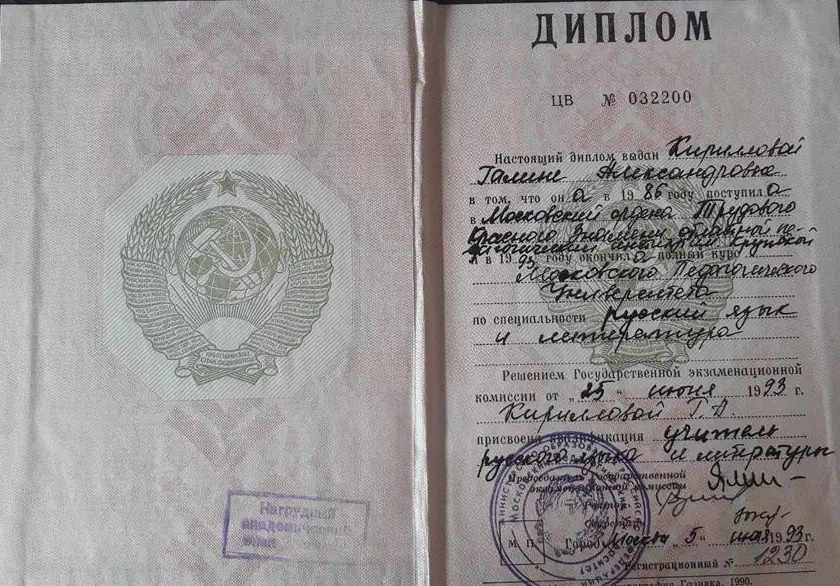 ДИПЛОМ
ЦВ № 032200
Настоящий диплом выдан Кирилловой
Галине Александровне
в том, что он а в 1986 году поступила
в Московский ордена Трудового
Красного Знамени областной пе-
дагогический Крупской
и в 1993 году окончила полный курс
Московского Педагогического
Университета
по специальности русский язык
и литература
Решением Государственной экзаменационной
комиссии от „25“ июня 1993 г.
Кирилловой Г. А.
присвоена квалификация учитель
русского языка и литературы
Председатель Государственной
экзаменационной комиссии
Ректор
Секретарь
М. П. Город Москва „5“ 1993 г.
Регистрационный № 1230
Гознака, 1990.
Нагрудный
академический
знак